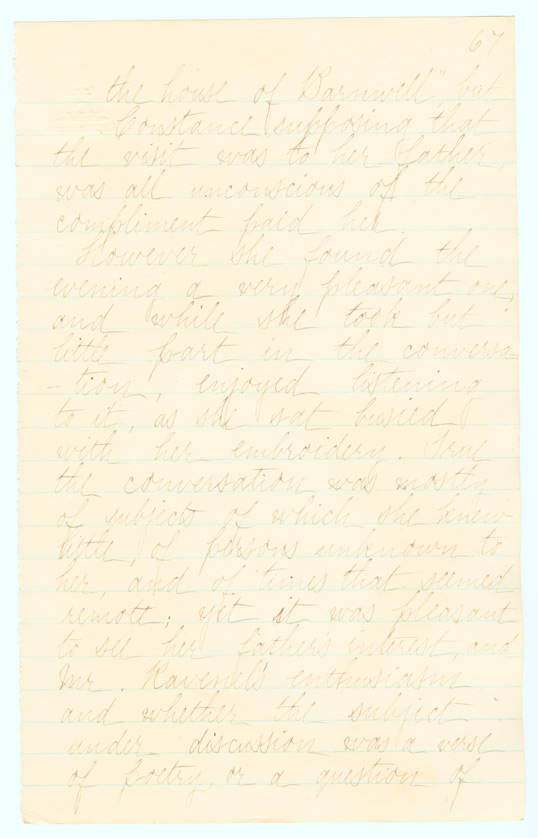 67
the house of "Barnwell", but
Constance supposing that
the visit was to her father,
was all unconscious of the
compliment paid her.
However she found the
evening a very pleasant one,
and while she took but
little part in the conversa-
-tion, enjoyed listening
to it, as she sat busied
with her embroidery. True
the conversation was mostly
of subjects of which she knew
little, of persons unknown to
her, and of times that seemed
remote; yet it was pleasant
to see her father's interest, and
Mr. Ravenel's enthusiasm
and whether the subject
under discussion was a verse
of poetry, or a question of